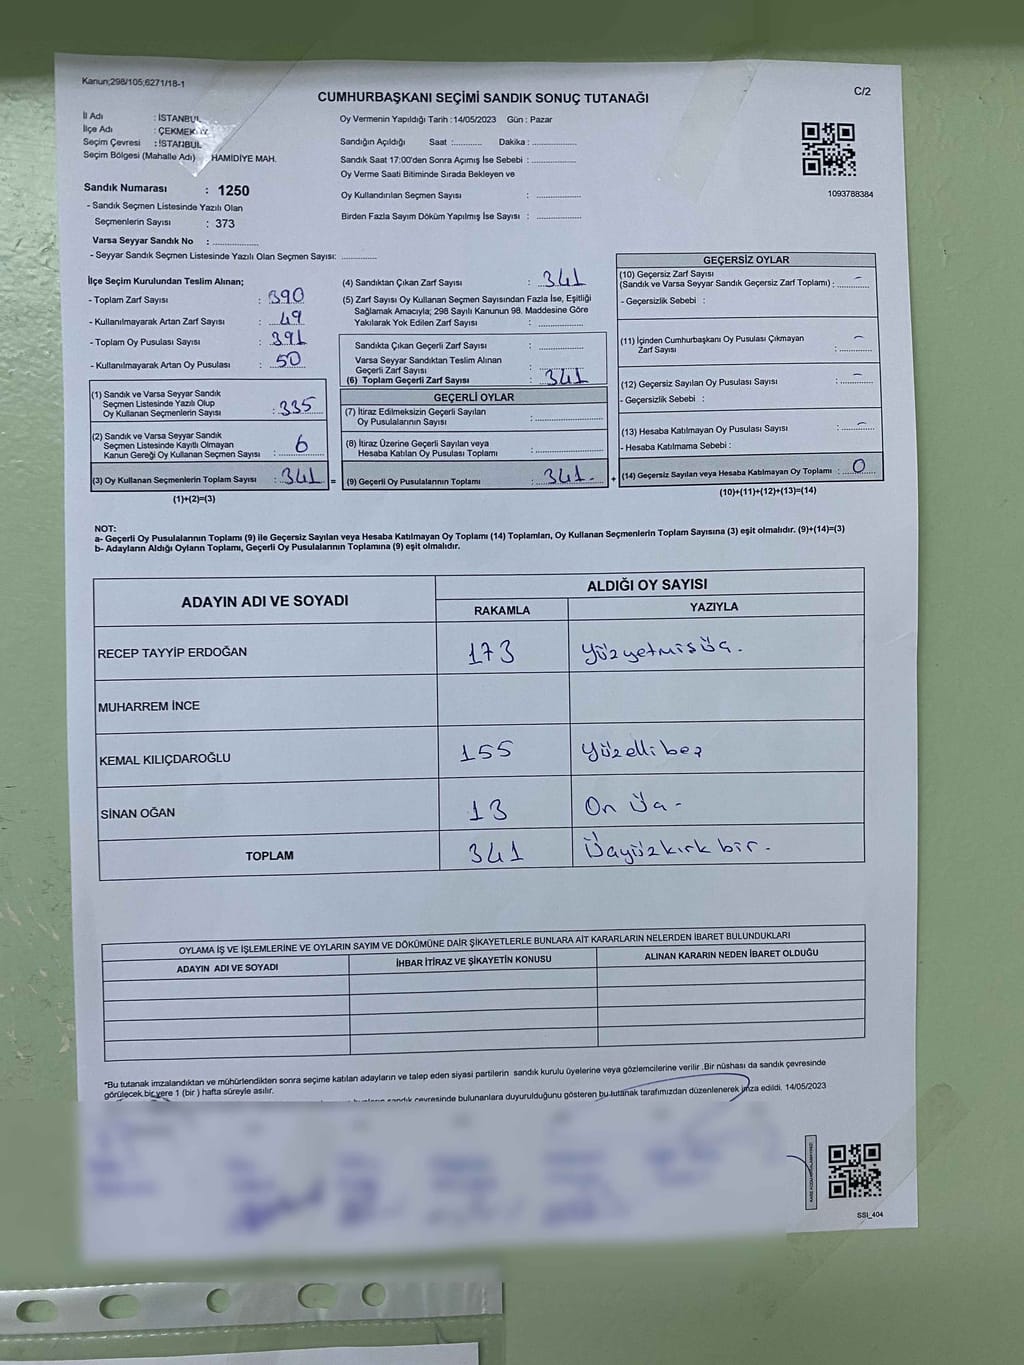 Kanun;298/105;6271/18-1
C/2
CUMHURBAŞKANI SEÇİMİ SANDIK SONUÇ TUTANAĞI
İl Adı : İSTANBUL
İlçe Adı : ÇEKMEKÖY
Seçim Çevresi : İSTANBUL
Seçim Bölgesi (Mahalle Adı) HAMİDİYE MAH.
Sandık Numarası : 1250
- Sandık Seçmen Listesinde Yazılı Olan
Seçmenlerin Sayısı : 373
Varsa Seyyar Sandık No : ..............
- Seyyar Sandık Seçmen Listesinde Yazılı Olan Seçmen Sayısı: ............
Oy Vermenin Yapıldığı Tarih : 14/05/2023 Gün : Pazar
Sandığın Açıldığı Saat :.......... Dakika : ..............
Sandık Saat 17:00'den Sonra Açımış İse Sebebi : ..............
Oy Verme Saati Bitiminde Sırada Bekleyen ve
Oy Kullandırılan Seçmen Sayısı : ..............
Birden Fazla Sayım Döküm Yapılmış İse Sayısı : ..............
1093788384
İlçe Seçim Kurulundan Teslim Alınan;
- Toplam Zarf Sayısı : 390
- Kullanılmayarak Artan Zarf Sayısı : 49
- Toplam Oy Pusulası Sayısı : 391
- Kullanılmayarak Artan Oy Pusulası : 50
(1) Sandık ve Varsa Seyyar Sandık
Seçmen Listesinde Yazılı Olup
Oy Kullanan Seçmenlerin Sayısı : 335
(2) Sandık ve Varsa Seyyar Sandık
Seçmen Listesinde Kayıtlı Olmayan
Kanun Gereği Oy Kullanan Seçmen Sayısı : 6
(3) Oy Kullanan Seçmenlerin Toplam Sayısı : 341 =
(1)+(2)=(3)
(4) Sandıktan Çıkan Zarf Sayısı : 341
(5) Zarf Sayısı Oy Kullanan Seçmen Sayısından Fazla İse, Eşitliği
Sağlamak Amacıyla; 298 Sayılı Kanunun 98. Maddesine Göre
Yakılarak Yok Edilen Zarf Sayısı : ..............
Sandıkta Çıkan Geçerli Zarf Sayısı : ..............
Varsa Seyyar Sandıktan Teslim Alınan
Geçerli Zarf Sayısı : ..............
(6) Toplam Geçerli Zarf Sayısı : 341
GEÇERLİ OYLAR
(7) İtiraz Edilmeksizin Geçerli Sayılan
Oy Pusulalarının Sayısı : ..............
(8) İtiraz Üzerine Geçerli Sayılan veya
Hesaba Katılan Oy Pusulası Toplamı : ..............
(9) Geçerli Oy Pusulalarının Toplamı : 341- +
GEÇERSİZ OYLAR
(10) Geçersiz Zarf Sayısı
(Sandık ve Varsa Seyyar Sandık Geçersiz Zarf Toplamı) : -
- Geçersizlik Sebebi :
(11) İçinden Cumhurbaşkanı Oy Pusulası Çıkmayan
Zarf Sayısı : -
(12) Geçersiz Sayılan Oy Pusulası Sayısı : -
- Geçersizlik Sebebi :
(13) Hesaba Katılmayan Oy Pusulası Sayısı : -
- Hesaba Katılmama Sebebi :
(14) Geçersiz Sayılan veya Hesaba Katılmayan Oy Toplamı : 0
(10)+(11)+(12)+(13)=(14)
NOT:
a- Geçerli Oy Pusulalarının Toplamı (9) ile Geçersiz Sayılan veya Hesaba Katılmayan Oy Toplamı (14) Toplamları, Oy Kullanan Seçmenlerin Toplam Sayısına (3) eşit olmalıdır. (9)+(14)=(3)
b- Adayların Aldığı Oyların Toplamı, Geçerli Oy Pusulalarının Toplamına (9) eşit olmalıdır.
ADAYIN ADI VE SOYADI ALDIĞI OY SAYISI
RAKAMLA YAZIYLA
RECEP TAYYİP ERDOĞAN 173 Yüzyetmişüç.
MUHARREM İNCE
KEMAL KILIÇDAROĞLU 155 Yüzellibeş
SİNAN OĞAN 13 On üç -
TOPLAM 341 Üçyüzkırk bir.
OYLAMA İŞ VE İŞLEMLERİNE VE OYLARIN SAYIM VE DÖKÜMÜNE DAİR ŞİKAYETLERLE BUNLARA AİT KARARLARIN NELERDEN İBARET BULUNDUKLARI
ADAYIN ADI VE SOYADI İHBAR İTİRAZ VE ŞİKAYETİN KONUSU ALINAN KARARIN NEDEN İBARET OLDUĞU
*Bu tutanak imzalandıktan ve mühürlendikten sonra seçime katılan adayların ve talep eden siyasi partilerin sandık kurulu üyelerine veya gözlemcilerine verilir .Bir nüshası da sandık çevresinde
görülecek bir yere 1 (bir ) hafta süreyle asılır.
sandık çevresinde bulunanlara duyurulduğunu gösteren bu tutanak tarafımızdan düzenlenerek imza edildi. 14/05/2023
SSI_404